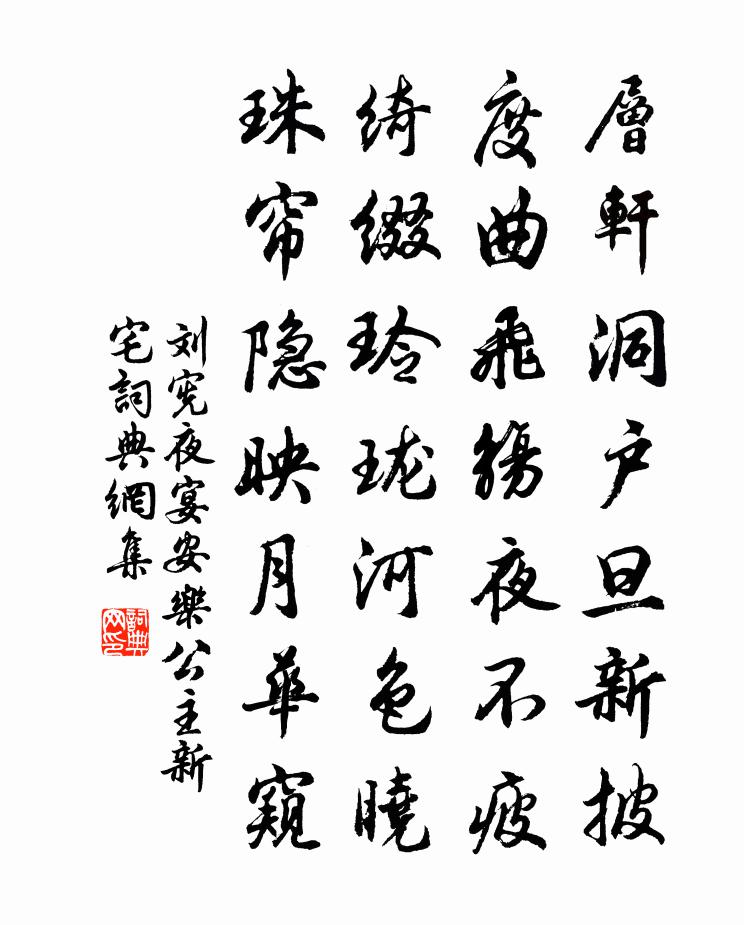 層軒洞户旦新披
度曲飛觴夜不疲
绮缀玲珑河色曉
珠帘隐映月華窺
刘宪夜宴安樂公主新
宅詞典網集
詞典
网印